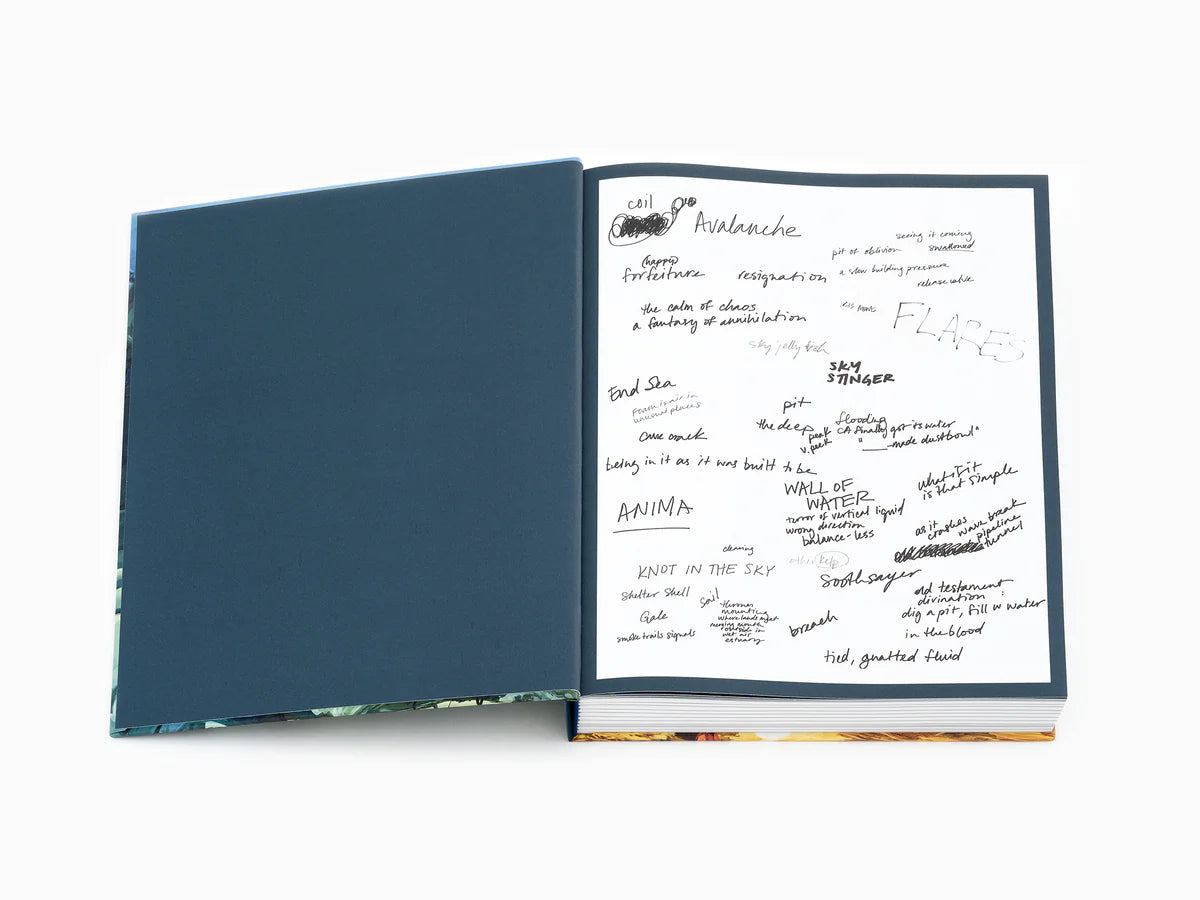 coil
Avalanche
seeing it coming
swallowed
pit of oblivion
a slow building pressure
release valve
(happy)
forfeiture
resignation
the calm of chaos
a fantasy of annihilation
FLARES
sky jelly fish
SKY
STINGER
End Sea
Foam is air in
unusual places
pit
the deep
peak
v. peek
flooding
CA finally got its water
"____-made dustbowl"
being in it as it was built to be
what if it
is that simple
WALL OF
WATER
terror of vertical liquid
wrong direction
balance-less
ANIMA
as it
crashes
wave break
pipeline
tunnel
cleaving
KNOT IN THE SKY
kelp
Soothsayer
Shelter Shell
soil
mounting
where lands meet
merging mouth
outside in
wet air
estuary
Gale
smoke trails signals
breach
old testament
divination:
dig a pit, fill w water
in the blood
tied, gnatted fluid